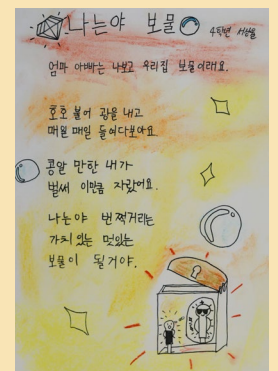 나는야 보물
4학년 서상율
엄마 아빠는 나보고 우리집 보물이래요.
호호 불어 광을 내고
매일 매일 들여다보아요
콩알 만한 내가
벌써 이만큼 자랐어요.
나는야 번쩍거리는
가치 있는 멋있는
보물이 될거야.